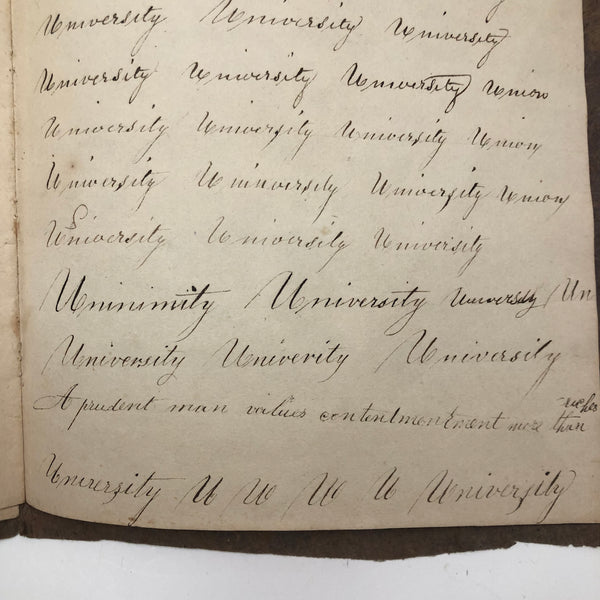 University University University
University University University Union
University University University Union
University Uninversity University Union
University University University
Uninimity University University Un
University Univerity University
A prudent man values contentmontment more than riches
University U U U U University